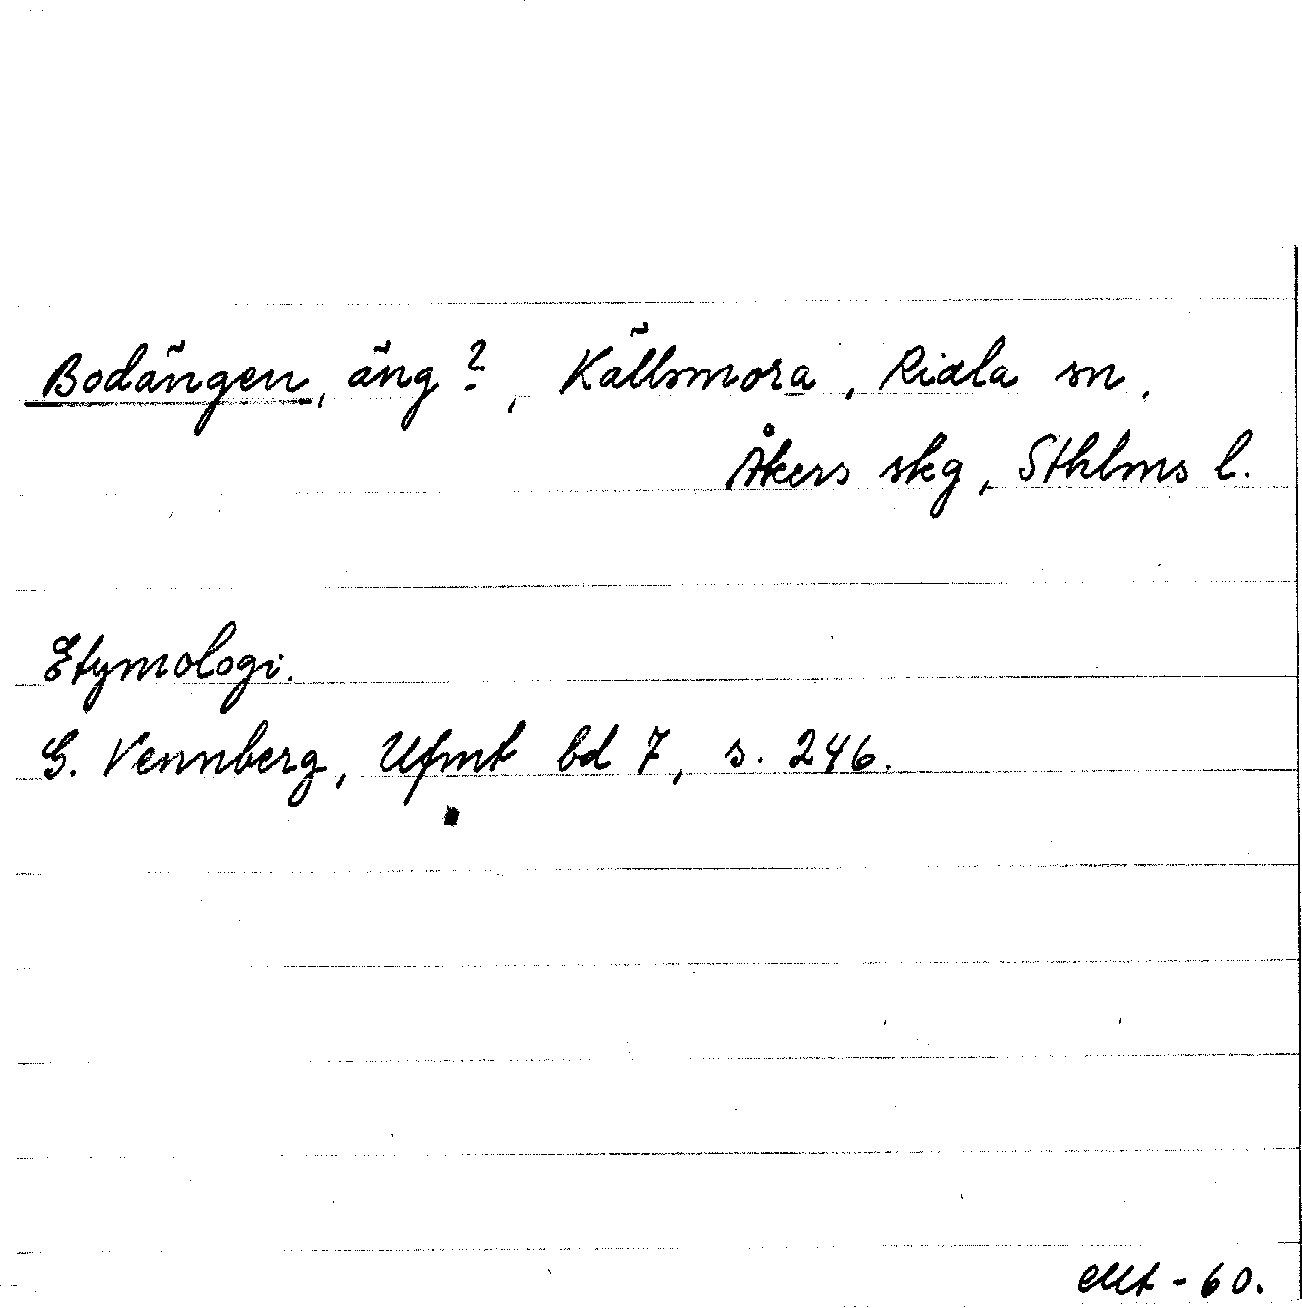 Bodängen, äng?, Källsmora, Riala sn,
Åkers skg, Sthlms l.
Etymologi.
G. Vennberg, Ufmt bd 7, s. 246.
-60.